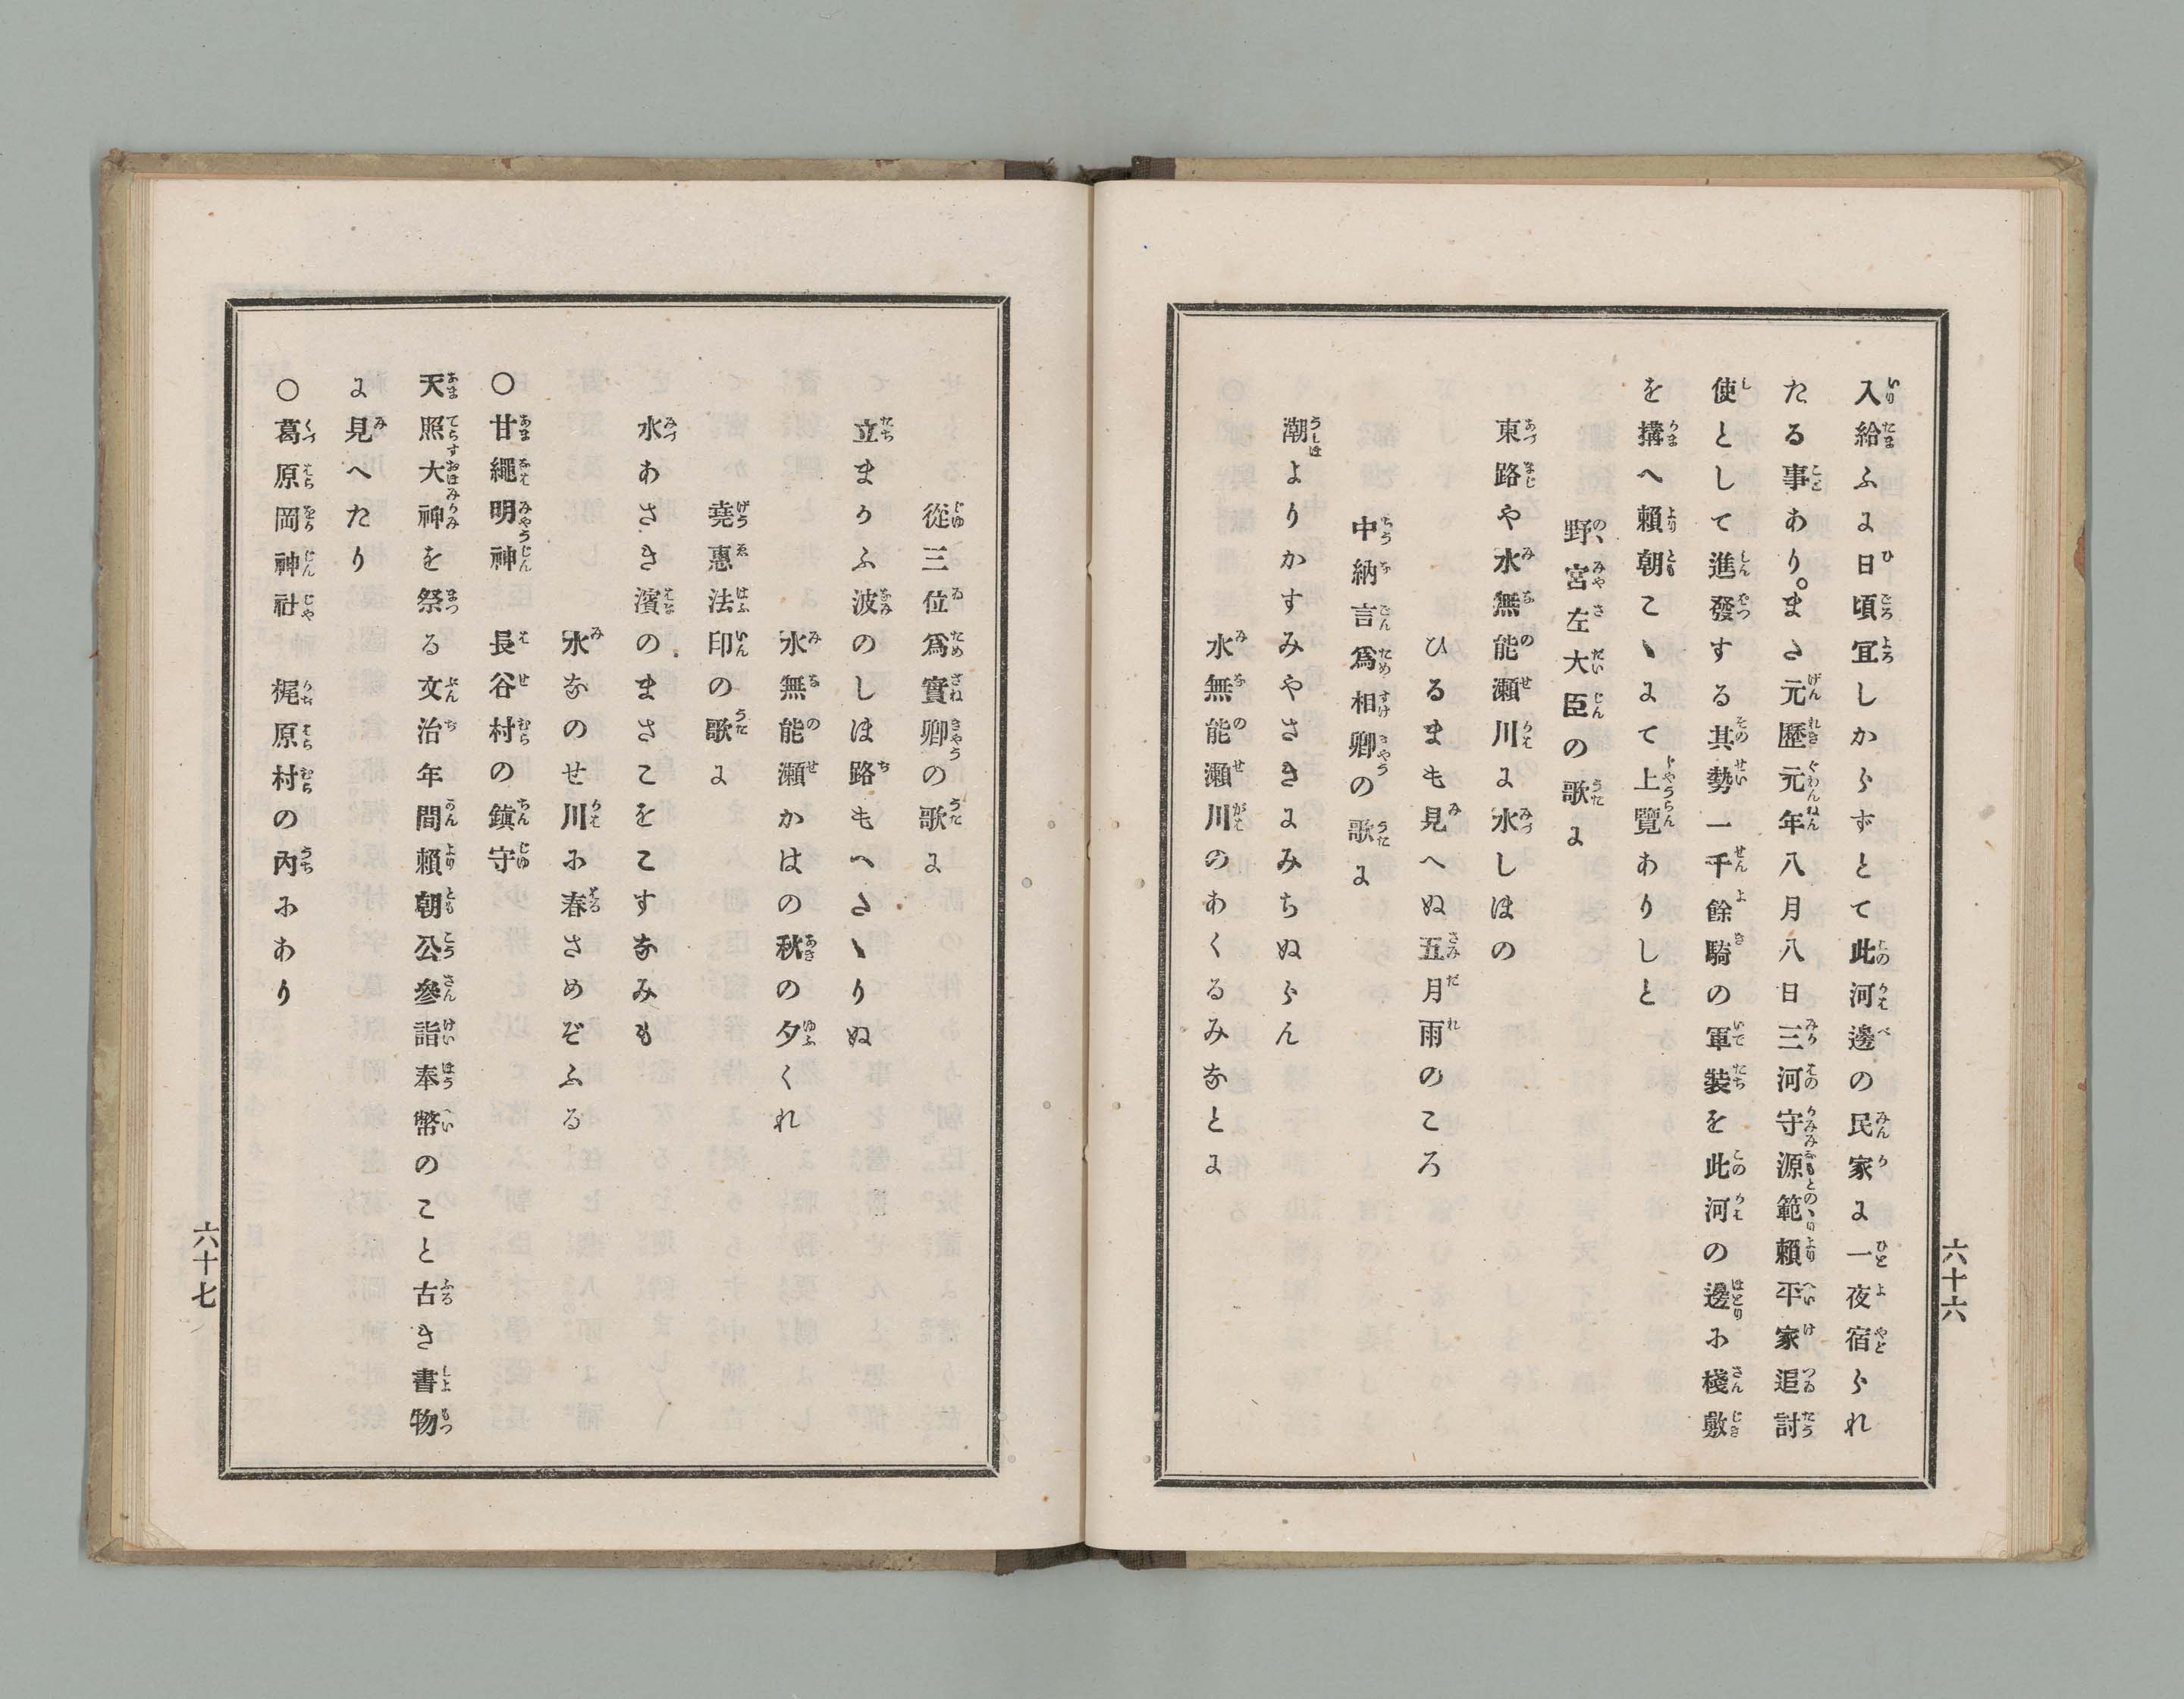 六十六
入給ふに日頃宜しからずとて此河邊の民家に一夜宿られ
たる事あり。また元歷元年八月八日三河守源範賴平家追討
使として進發する其勢一千餘騎の軍裝を此河の邊に棧敷
を搆へ賴朝こゝにて上覽ありしと
野宮左大臣の歌に
東路や水無能瀬川に水しほの
ひるまも見へぬ五月雨のころ
中納言爲相卿の歌に
潮よりかすみやさきにみちぬらん
水無能瀬川のあくるみなとに
從三位爲實卿の歌に
立まかふ波のしほ路もへたゝりぬ
水無能瀬かはの秋の夕くれ
堯惠法印の歌に
水あさき濱のまさこをこすなみも
水なのせ川に春さめぞふる
○甘繩明神 長谷村の鎭守
天照大神を祭る文治年間賴朝公參詣奉幣のこと古き書物
に見へたり
○葛原岡神社 梶原村の內にあり
六十七